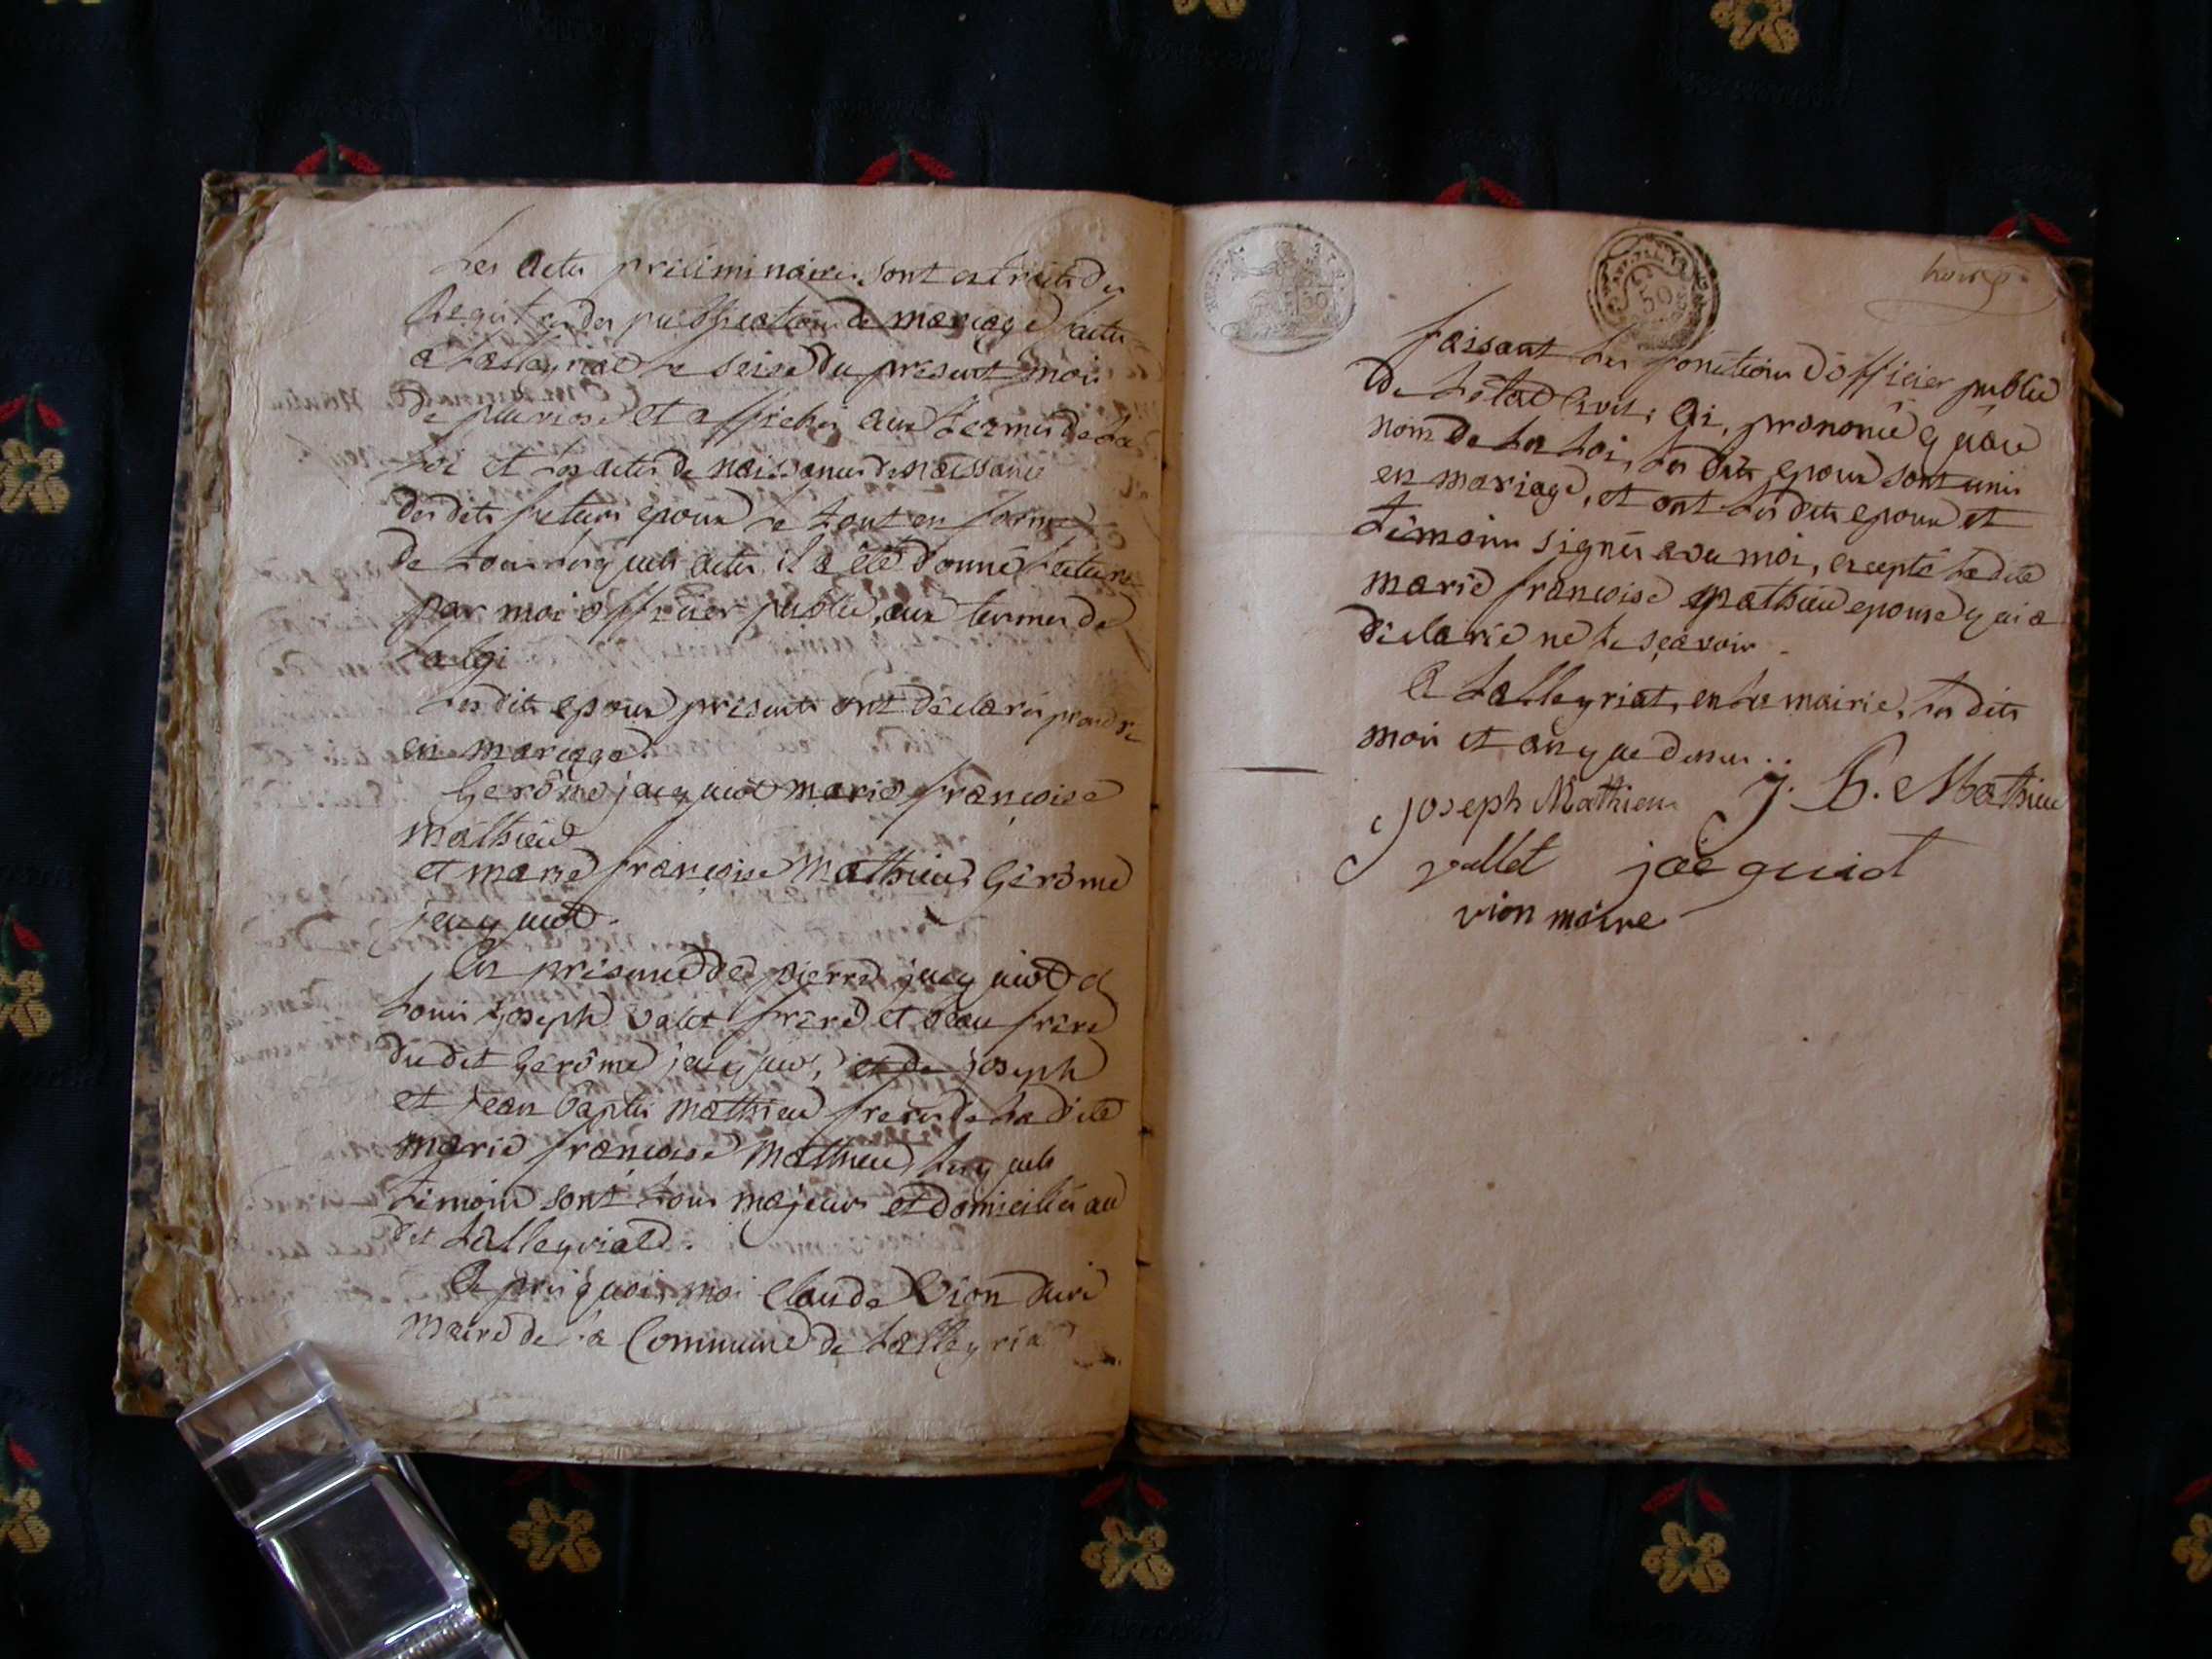 Les actes préliminaires sont extraits des
Registres des publications de mariage faites
a Lalleyriat le seise du présent mois
de pluviose et affichés aux termes de la
loi et les actes de naissances de naissance
des dits futurs epoux le tout en forme
de tous lesquels actes il a été donné lecture
par moi officier public, aux termes de
la loi
Les dits epoux presents ont déclarés prendre
en mariage.
Gérôme jacquiot marie françoise
mathieu
et marie françoise Mathieu, Gérôme
jacquiot.
En présence de pierre jacquiot et
Louis joseph valet frère et beau frère
du dit Gérôme jacquiot, et de joseph
et jean baptis mathieu freres de la dite
marie françoise Mathieu, lesquels
témoins sont tous majeurs et domiciliés au
dit Lalleyriat.
Après quoi, moi Claude Vion
maire de la Commune de Lalleyriat
faisant les fonctions d'officier public
de l'état civil, ai, prononcé qu'au
nom de la loi, les dits epoux sont unis
en mariage, et ont les dits epoux et
témoins signés avec moi, excepté la dite
marie françoise mathieu epouse qui a
déclarée ne le sçavoir.
A Lalleyriat, en la mairie, les dits
mois et an que dessus..
joseph Mathieu J. B. Mathieu
vallet jacquiot
vion maire
50
50